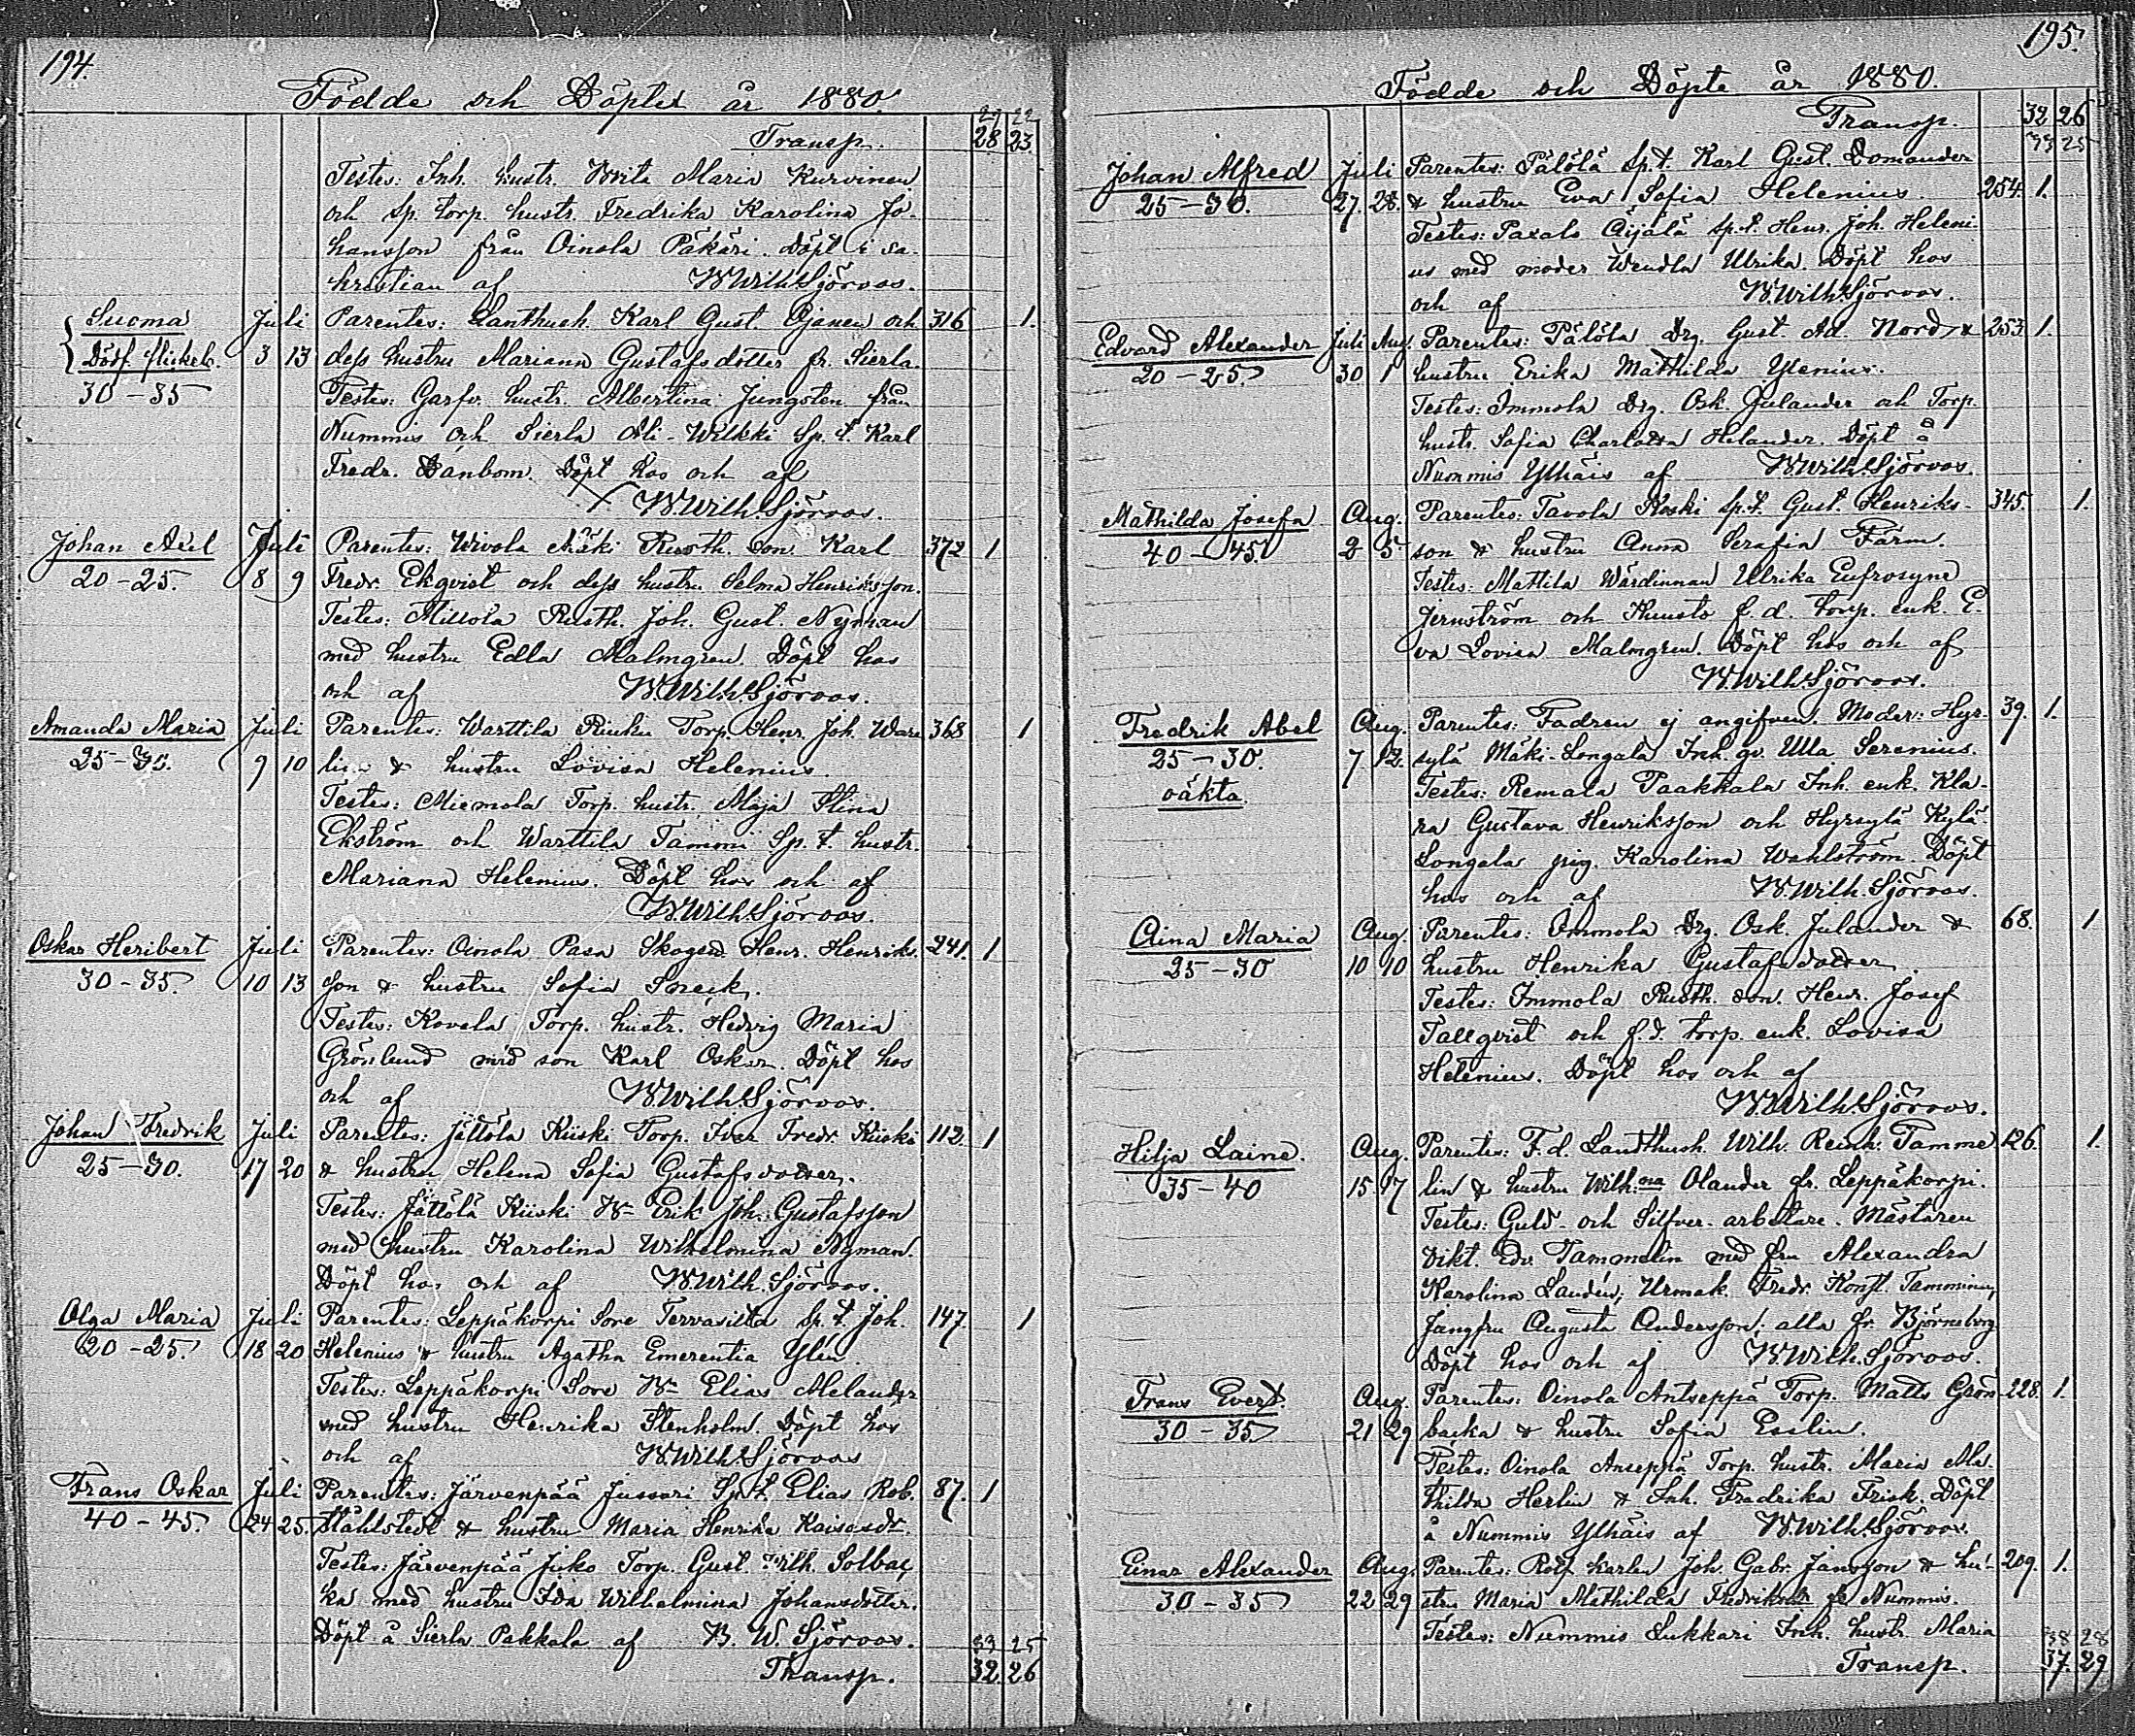 194.
Födde och Döpte år 1880
29 22
Transp. 28 23
Testes: Inh. hustr. Brita Maria Kurvinen
och Sp. torp. hustr. Fredrika Karolina Jo-
hansson från Oinola Päkäri. Döpt i sa-
kristian af W. Wilh. Sjöroos.
Juli Parentes: Lanthush. Karl Gust. och 316 1.
Döpf. flickeb. 3 13 dess hustru Mariana Gustafsdotter fr. Sierla.
30-35 Testes: Garfv. hustr. Albertina Jungsten från
Nummis och Sierla Ali-Wilkki Sp. t. Karl
Fredr. Danbom. Döpt hos och af
W. Wilh. Sjöroos.
Johan Axel Juli Parentes: Wivola Rusth. son Karl 372 1
20-25. 8 9 Fredr. Ekqvist och dess hustru Selma Henriksson.
Testes: Rusth. Joh. Gust. Nyman
med hustru Edla Malmgren. Döpt hos
och af W. Wilh. Sjöroos.
Amanda Maria Juli Parentes: Warttila Torp. Henr. Joh. Ware 368 1
25-30. 9 10 lius & hustru Lovisa Helenius.
Testes: Torp. hustr. Maja Stina
Ekström och Warttila Tammi Sp. t. hustr.
Mariana Helenius. Döpt hos och af
W. Wilh. Sjöroos.
Oskar Heribert Juli Parentes: Oinola Pasa Henr. Henriks- 241. 1
30-35. 10 13 son & hustru Sofia
Testes: Kovela Torp. hustr. Hedvig Maria
Grönlund med son Karl Oskar. Döpt hos
och af W. Wilh. Sjöroos.
Johan Fredrik Juli Parentes: Jättölä Kiiski Torp. Fredr. Kiiski 112. 1
25-30. 17 20 & hustru Helena Sofia Gustafsdotter.
Testes: Jättölä Kiiski Erik Joh. Gustafsson
med hustru Karolina Wilhelmina Nyman.
Döpt hos och af W. Wilh. Sjöroos.
Olga Maria Juli Parentes: Leppäkorpi Sore Sp. t. Joh. 147. 1
20-25. 18 20 Helenius & hustru Agatha Emerentia Ylén
Testes: Leppäkorpi Sore Elias Melander
med hustru Henrika Stenholm. Döpt hos
och af W. Wilh. Sjöroos
Frans Oskar Juli Parentes: Järvenpää Jussari Sp. t. Elias Rob. 87. 1
40-45. 24 25. Ståhlstedt & hustru Maria Henrika
Testes: Järvenpää Torp. Gust. Wilh. Solbac
ka med hustru Ida Wilhelmina Johansdotter.
Döpt å Sierla Pakkala af W. W. Sjöroos.
33 25
Transp. 32. 26
195.
Födde och Döpte år 1880.
Transp. 32 26
33 25
Johan Alfred Juli Parentes: Pälölä Sp. t. Karl Gust. Domander
25-30. 27. 28. & hustru Eva Sofia Helenius 254. 1.
Testes: Äijälä sp. t. Henr. Joh. Heleni-
us med moder Wendla Ulrika. Döpt hos
och af W. Wilh. Sjöroos.
Edvard Alexander Juli Aug. Parentes: Pälölä Drg. Gust. Ad. Nord & 253 1.
20-25. 30 1 hustru Erika Mathilda Ylenius.
Testes: Immola Drg. Osk. Julander och Torp.
hustr. Sofia Charlotta Helander. Döpt å
Nummis Ylhäis af W. Wilh. Sjöroos.
Mathilda Josefa Aug. Parentes: Tavola Koski Sp. t. Gust. Henriks- 345. 1.
40-45. 2 5 son & hustru Anna Serafia Färm.
Testes: Mattila Wärdinnan Ulrika Eufrosyne
Jernström och f. d. torp. enk. E-
va Lovisa Malmgren. Döpt hos och af
W. Wilh. Sjöroos.
Fredrik Abel Aug. Parentes: Fadren ej angifven. Moder: Hyr- 39. 1.
25-30. 7 12. sylä Mäki-Longala Inh. qv. Ulla Serenius.
oäkta. Testes: Remala Paakkala Inh. enk. Kla-
ra Gustava Henriksson och Hyrsylä Kylä-
Longala pig. Karolina Wahlström. Döpt
hos och af W. Wilh. Sjöroos.
Aina Maria Aug. Parentes: Immola Drg. Osk. Julander & 68. 1
25-30 10 10 hustru Henrika Gustafsdotter.
Testes: Immola Rusth. son. Henr. Josef
Tallqvist och f. d. torp. enk. Lovisa
Helenius. Döpt hos och af
W. Wilh. Sjöroos.
Hilja Laine. Aug. Parentes: F. d. Landthush. Wilh. Reinh. Tamme 126. 1.
35-40 15. 17 lin & hustru Wilh:na Olander fr. Leppäkorpi.
Testes: Guld- och Silfver-arbetare-Mästaren
Vikt. Edv. Tammelin med fru Alexandra
Karolina Landén, Urmak. Fredr. Konst. Tamminen,
Jungfru Augusta Andersson: alla fr. Björneborg
Döpt hos och af W. Wilh. Sjöroos.
Frans Evert. Aug. Parentes: Oinola Antseppä Torp. Matts Grön- 228. 1.
30-35. 21 29 backa & hustru Sofia Esslin.
Testes: Oinola Anseppä Torp. hustr. Maria Ma-
thilda Herlin & Inh. Fredrika Frisk. Döpt
å Nummis Ylhäis af W. Wilh. Sjöroos.
Einar Alexander Aug. Parentes: Rotf. karlen Joh. Gabr. Jansson & hu- 209. 1.
30-35 22 29 stru Maria Mathilda Fredriksdr fr Nummis.
Testes: Nummis Lukkari Inh. hustr. Maria
38 28
Transp. 37. 29